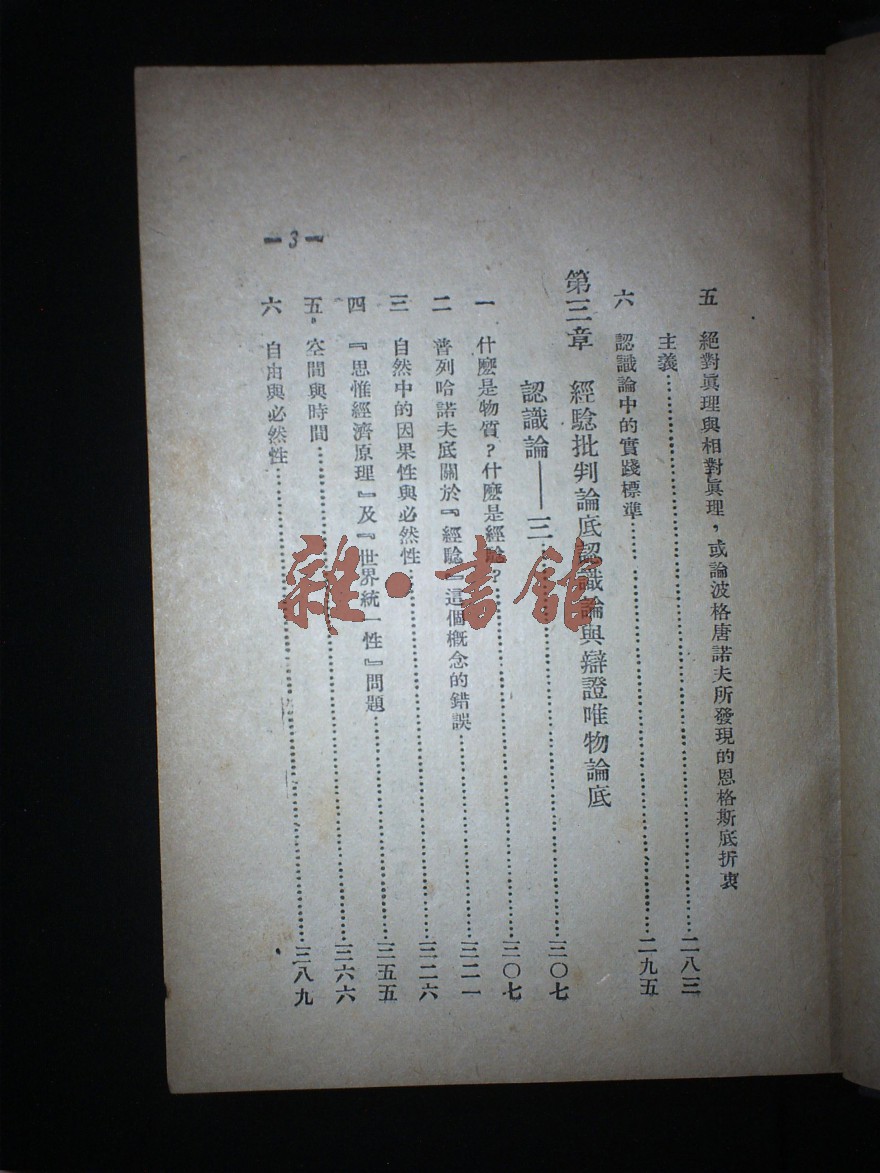 五 絕對眞理與相對眞理，或論波格唐諾夫所發現的恩格斯底折衷
主義……二八三
六 認識論中的實踐標準……二九五
第三章 經驗批判論底認識論與辯證唯物論底
認識論——三……三〇七
一 什麽是物質？什麽是經驗？……三〇七
二 普列哈諾夫底關於『經驗』這個槪念的錯誤……三二一
三 自然中的因果性與必然性……三二六
四 『思惟經濟原理』及『世界統一性』問題……三五五
五 空間與時間……三六六
六 自由與必然性……三八九
—3—
雜·書館